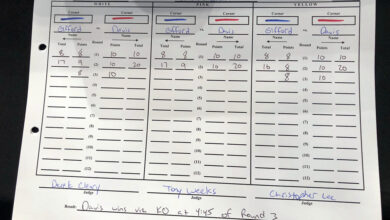 WHITE PINK YELLOW
Corner Corner Corner Corner Corner Corner
Gifford vs. Davis Gifford vs. Davis Gifford vs. Davis
Name Name Name Name Name Name
Total Points Round Points Total Total Points Round Points Total Total Points Round Points Total
8 8 (1) 10 10 8 8 (1) 10 10 8 8 (1) 10 10
17 9 (2) 10 20 17 9 (2) 10 20 16 8 (2) 10 20
8 (3) 10 (3) 8 (3) 10
(4) (4) (4)
(5) (5) (5)
(6) (6) (6)
(7) (7) (7)
(8) (8) (8)
(9) (9) (9)
(10) (10) (10)
(11) (11) (11)
(12) (12) (12)
Derek Cleary Tony Weeks Christopher Lee
Judge Judge Judge
Result: Davis wins via KO at 4:45 of Round 3